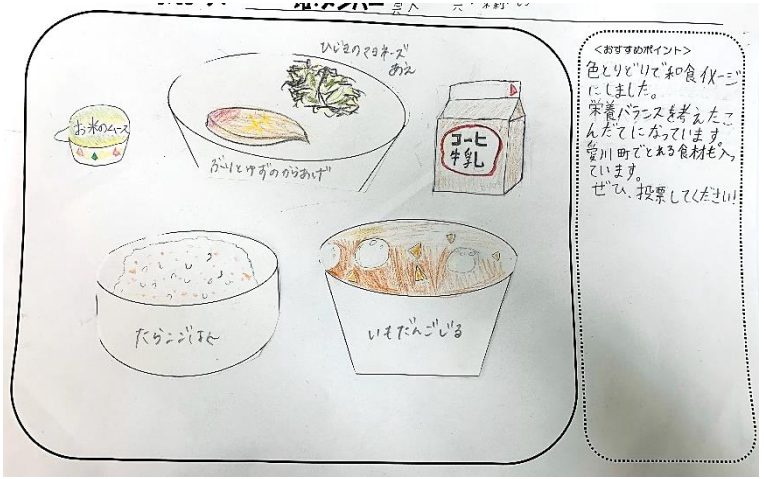 ひじきのマヨネーズ
あえ
お米のムース
ぶりとゆずのからあげ
コーヒー
牛乳
たらこごはん
いもだんごじる
<おすすめポイント>
色とりどりで和食イメージ
にしました。
栄養バランスを考えたこ
んだてになっています。
愛川町でとれる食材も入っ
ています。
ぜひ、投票してください!